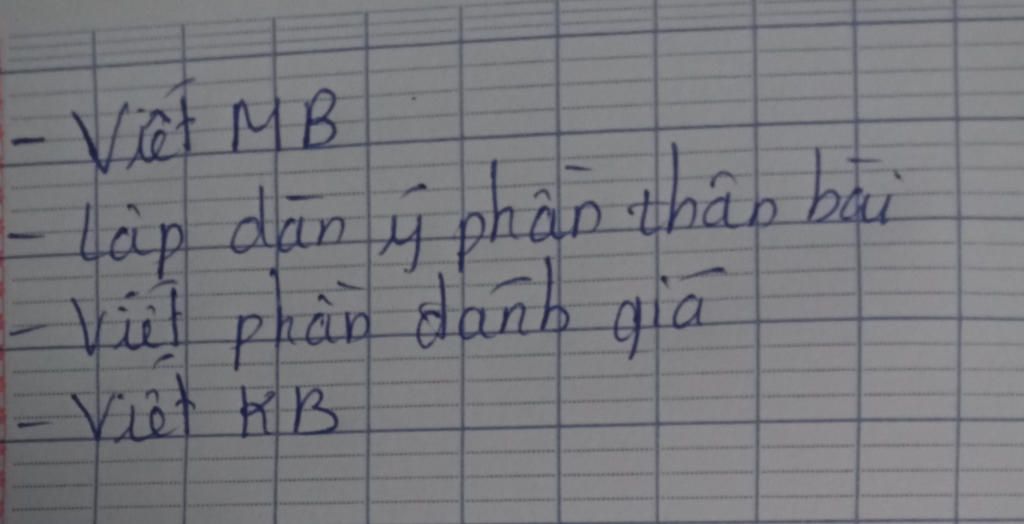 - Viết MB
- Lập dàn ý phần thân bài
- Viết phần đánh giá
- Viết KB